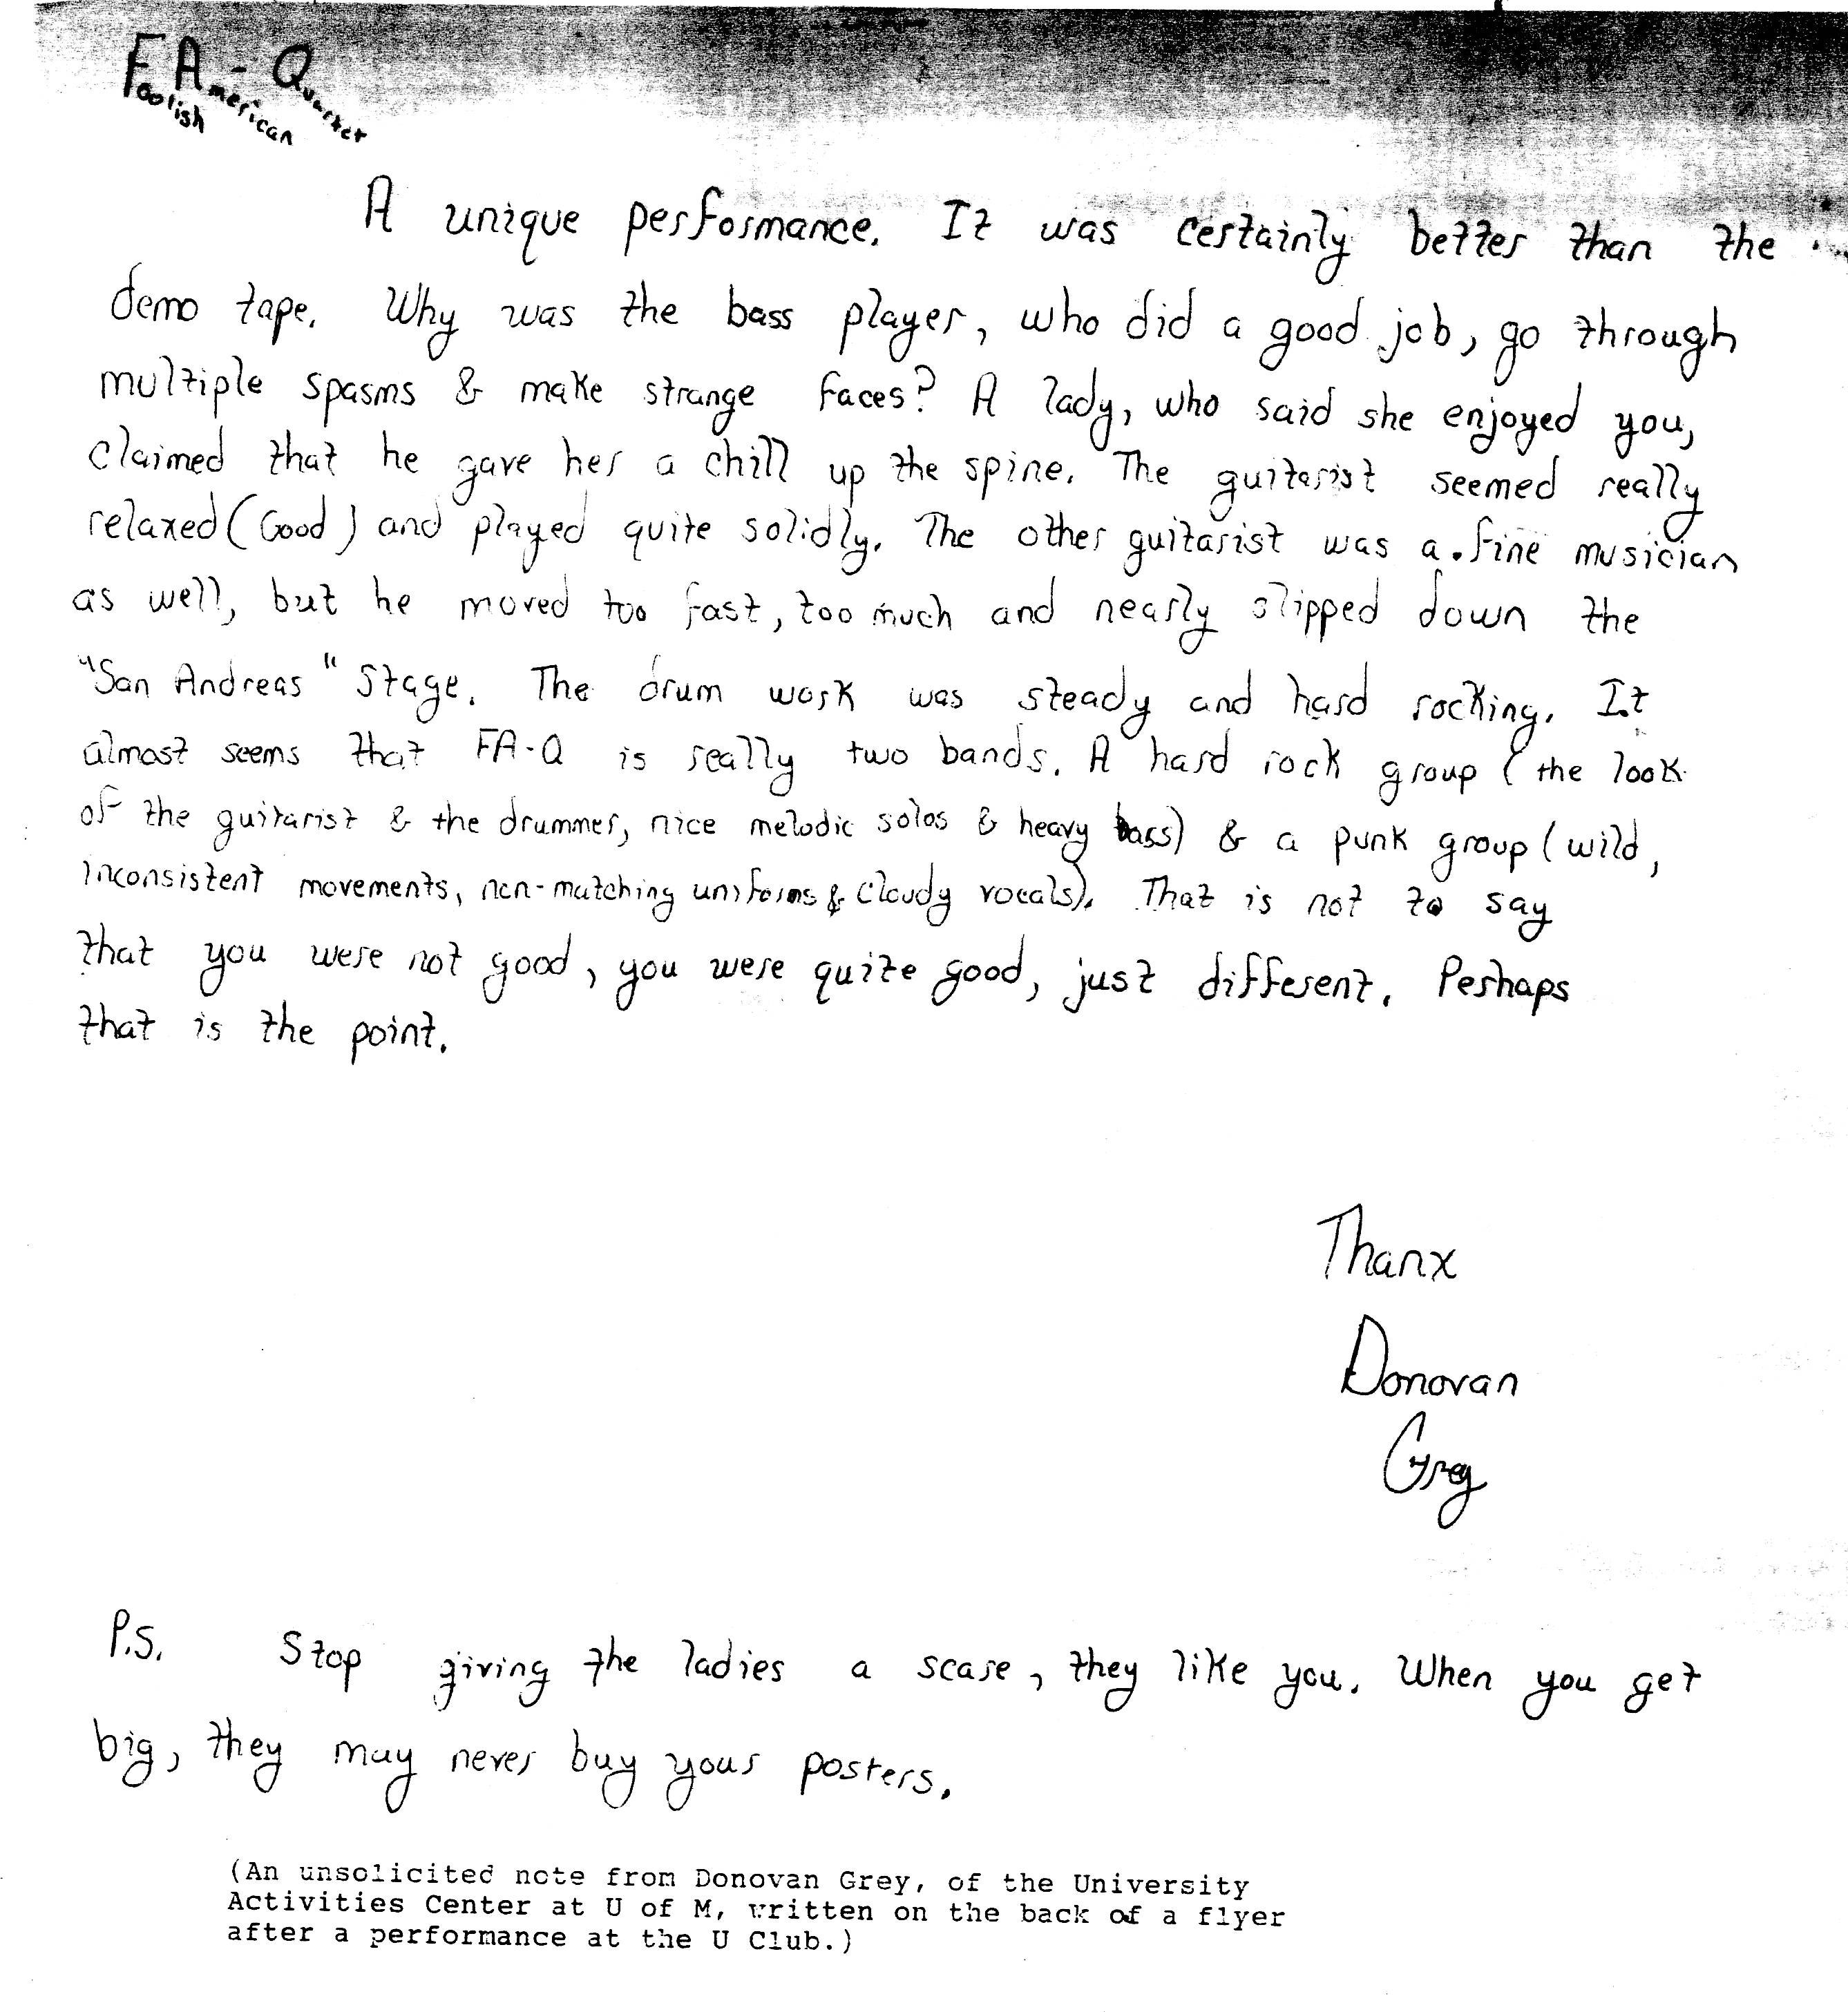 FA-Q
Foolish American Quartet
A unique performance. It was certainly better than the
demo tape. Why was the bass player, who did a good job, go through
multiple spasms & make strange faces? A lady, who said she enjoyed you,
claimed that he gave her a chill up the spine. The guitarist seemed really
relaxed (Good) and played quite solidly. The other guitarist was a fine musician
as well, but he moved too fast, too much and nearly slipped down the
"San Andreas" Stage. The drum work was steady and hard rocking. It
almost seems that FA-Q is really two bands. A hard rock group (the look
of the guitarist & the drummer, nice melodic solos & heavy bass) & a punk group (wild,
inconsistent movements, non-matching uniforms & cloudy vocals). That is not to say
that you were not good, you were quite good, just different. Perhaps
that is the point.
Thanx
Donovan
Grey
P.S. Stop giving the ladies a scare, they like you. When you get
big, they may never buy your posters.
(An unsolicited note from Donovan Grey, of the University
Activities Center at U of M, written on the back of a flyer
after a performance at the U Club.)